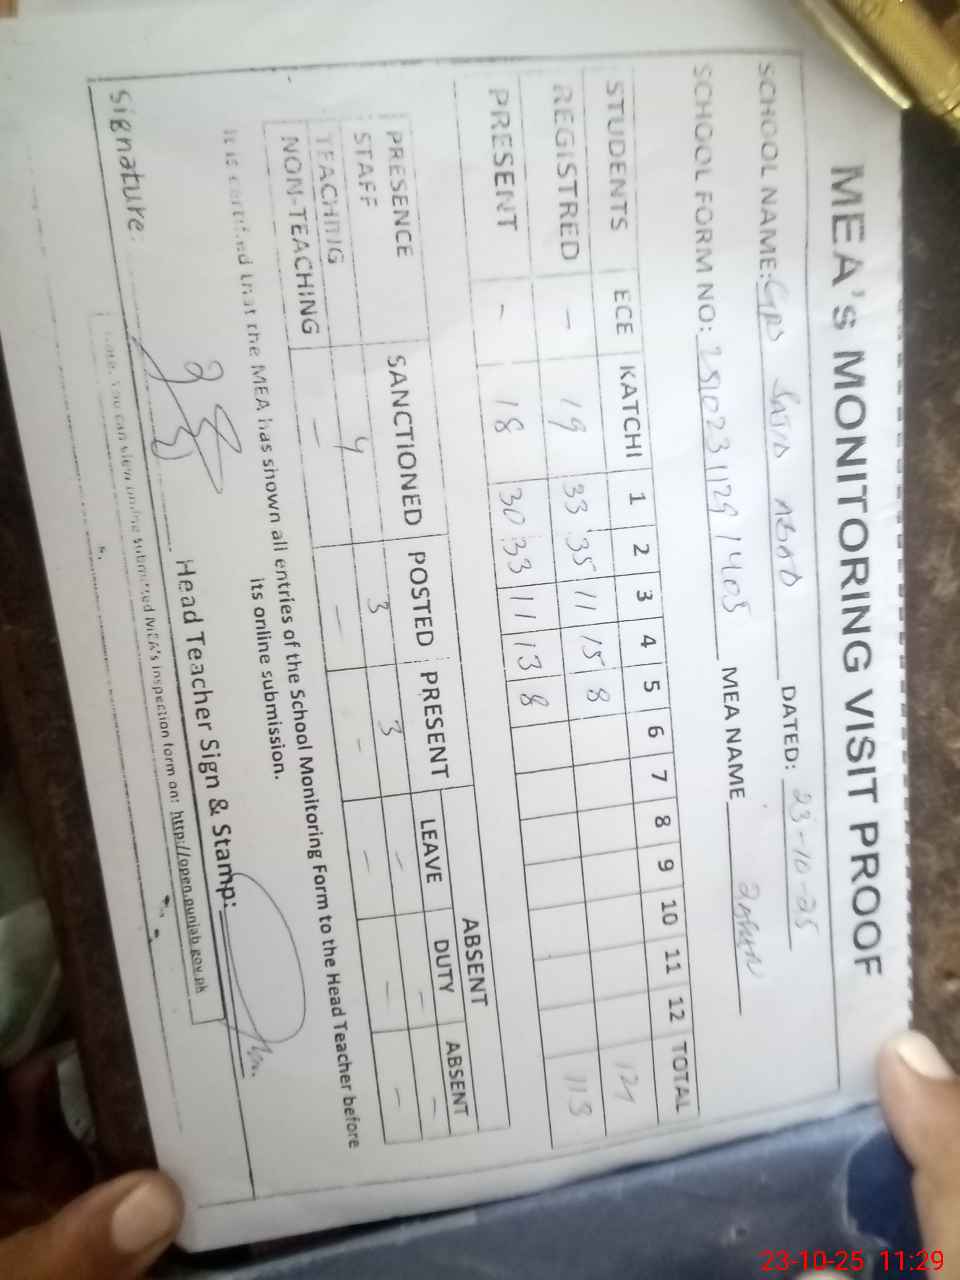 MEA's MONITORING VISIT PROOF
SCHOOL NAME: GPS SAJID ABAD DATED: 23-10-25
SCHOOL FORM NO: 25102311291405 MEA NAME
STUDENTS ECE KATCHI 1 2 3 4 5 6 7 8 9 10 11 12 TOTAL
REGISTRED - 19 33 35 11 15 8 121
PRESENT - 18 30 33 11 13 8 113
PRESENCE SANCTIONED POSTED PRESENT ABSENT
STAFF LEAVE DUTY ABSENT
TEACHING 4 3 3 - - -
NON-TEACHING - - - - - -
It is certified that the MEA has shown all entries of the School Monitoring Form to the Head Teacher before
its online submission.
Signature: Head Teacher Sign & Stamp:
Note: You can view online submitted MEA's inspection form on: http://open.punjab.gov.pk
23-10-25 11:29